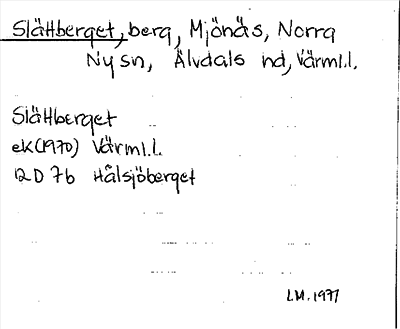 Slättberget, berg, Mjönäs, Norra
Ny sn, Älvdals hd, Värml.l.
Slättberget
eK(1970) Värml.l.
12D 7b Hålsjöberget
LM. 1977